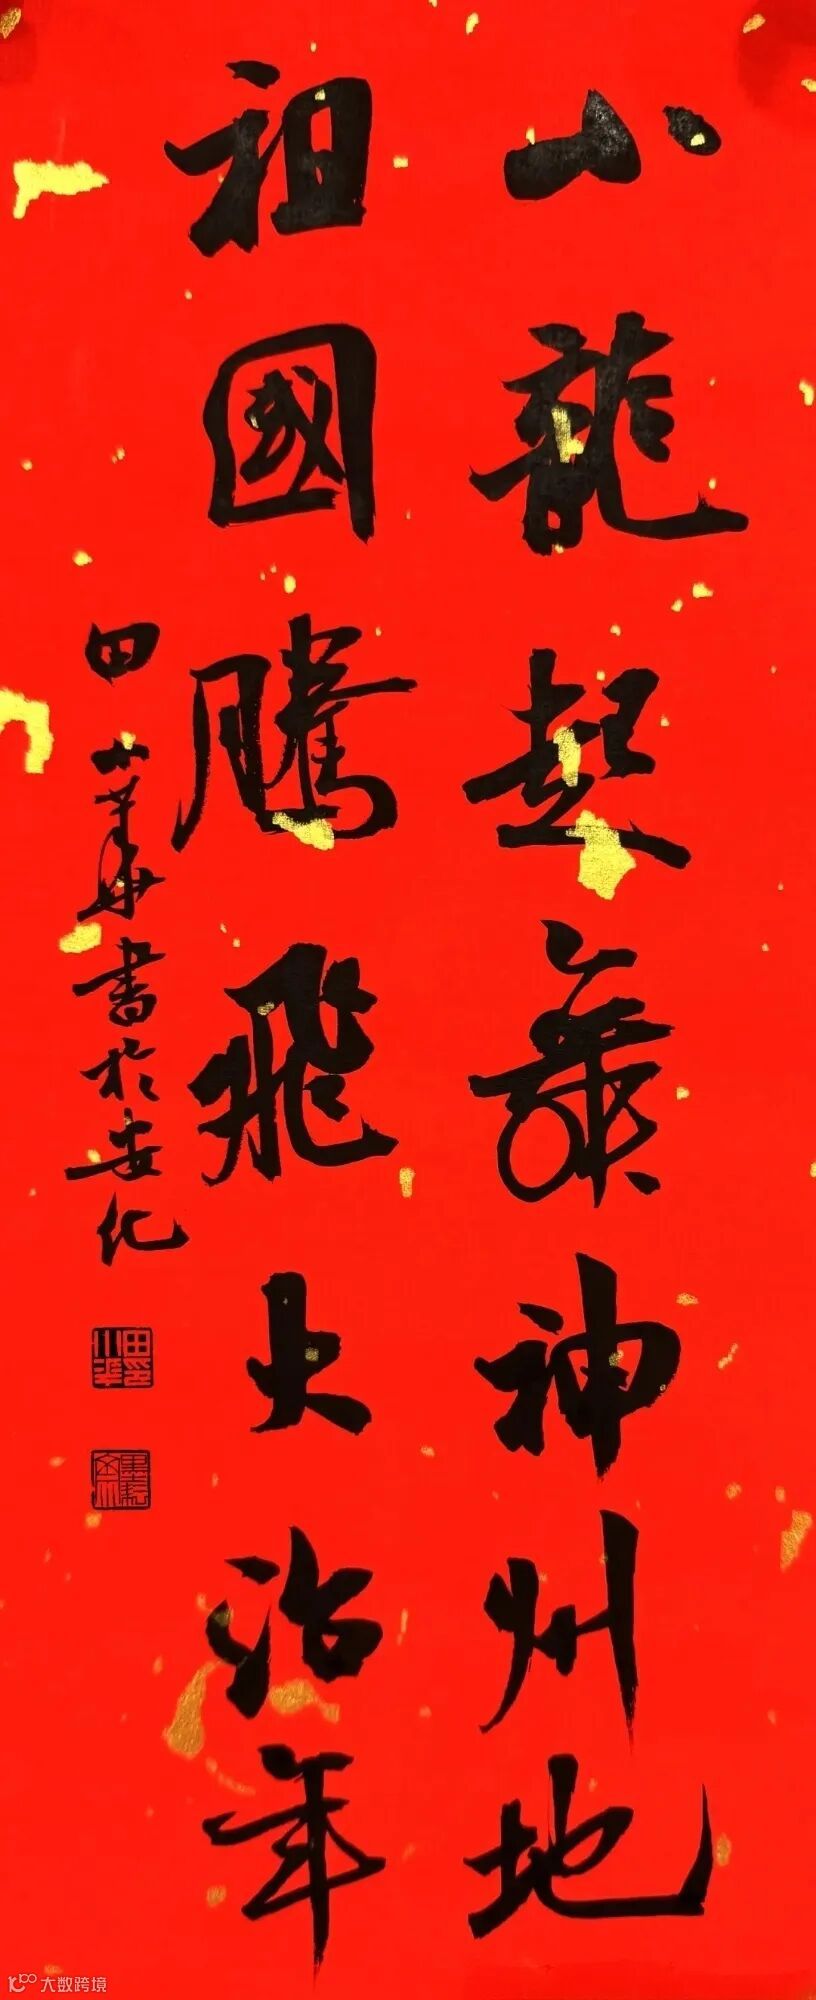 小龍起舞神州地
祖國騰飛大治年
田小華書於安化
田小華印
大数跨境